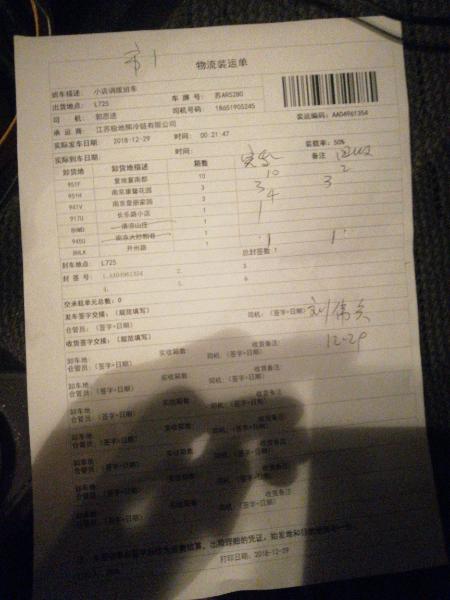 物流装运单
班车描述: 小店调拨班车
出货地点: L725
车 牌 号: 苏AR5280
司 机: 郭恩进
司机号码: 18651905245
承 运 商: 江苏极地熊冷链有限公司
装运编码: AA04961354
实际发车日期: 2018-12-29
时间: 00:21:47
装载率: 50%
实际到车日期:
时间:
卸货地 卸货地描述 箱数 实发 备注 回收
951F 10 10 2
951H 南京康馨花园 3 3 3
941V 南京皇册家园 3 4
917U 长乐路小店 1 1
8HWD 清凉山庄 1
945U 1
8HLK 升州路 1 1 1
总封签数:
封车地点: L725
封 签 号: 1.AA04961354 2. 3.
4. 5. 6
交承载单元总数: 0
发车签字交接: (规范填写)
仓管员: (签字+日期)
司机: (签字+日期) 刘伟兵
收货签字交接: (规范填写)
12-29
卸车地 实收箱数 收货备注:
仓管员: (签字+日期) 司机: (签字+日期)
卸车地 实收箱数: 收货备注
仓管员: (签字+日期) 司机: (签字+日期)
卸车地 实收箱数: 收货备注
仓管员: (签字+日期) 司机: (签字+日期)
卸车地 实收箱数: 收货备注
仓管员: (签字+日期) 司机: (签字+日期)
卸车地 实收箱数: 收货备注
仓管员: (签字+日期) 司机: (签字+日期)
卸车地 实收箱数: 收货备注
仓管员: (签字+日期) 司机: (签字+日期)
打印日期: 2018-12-29